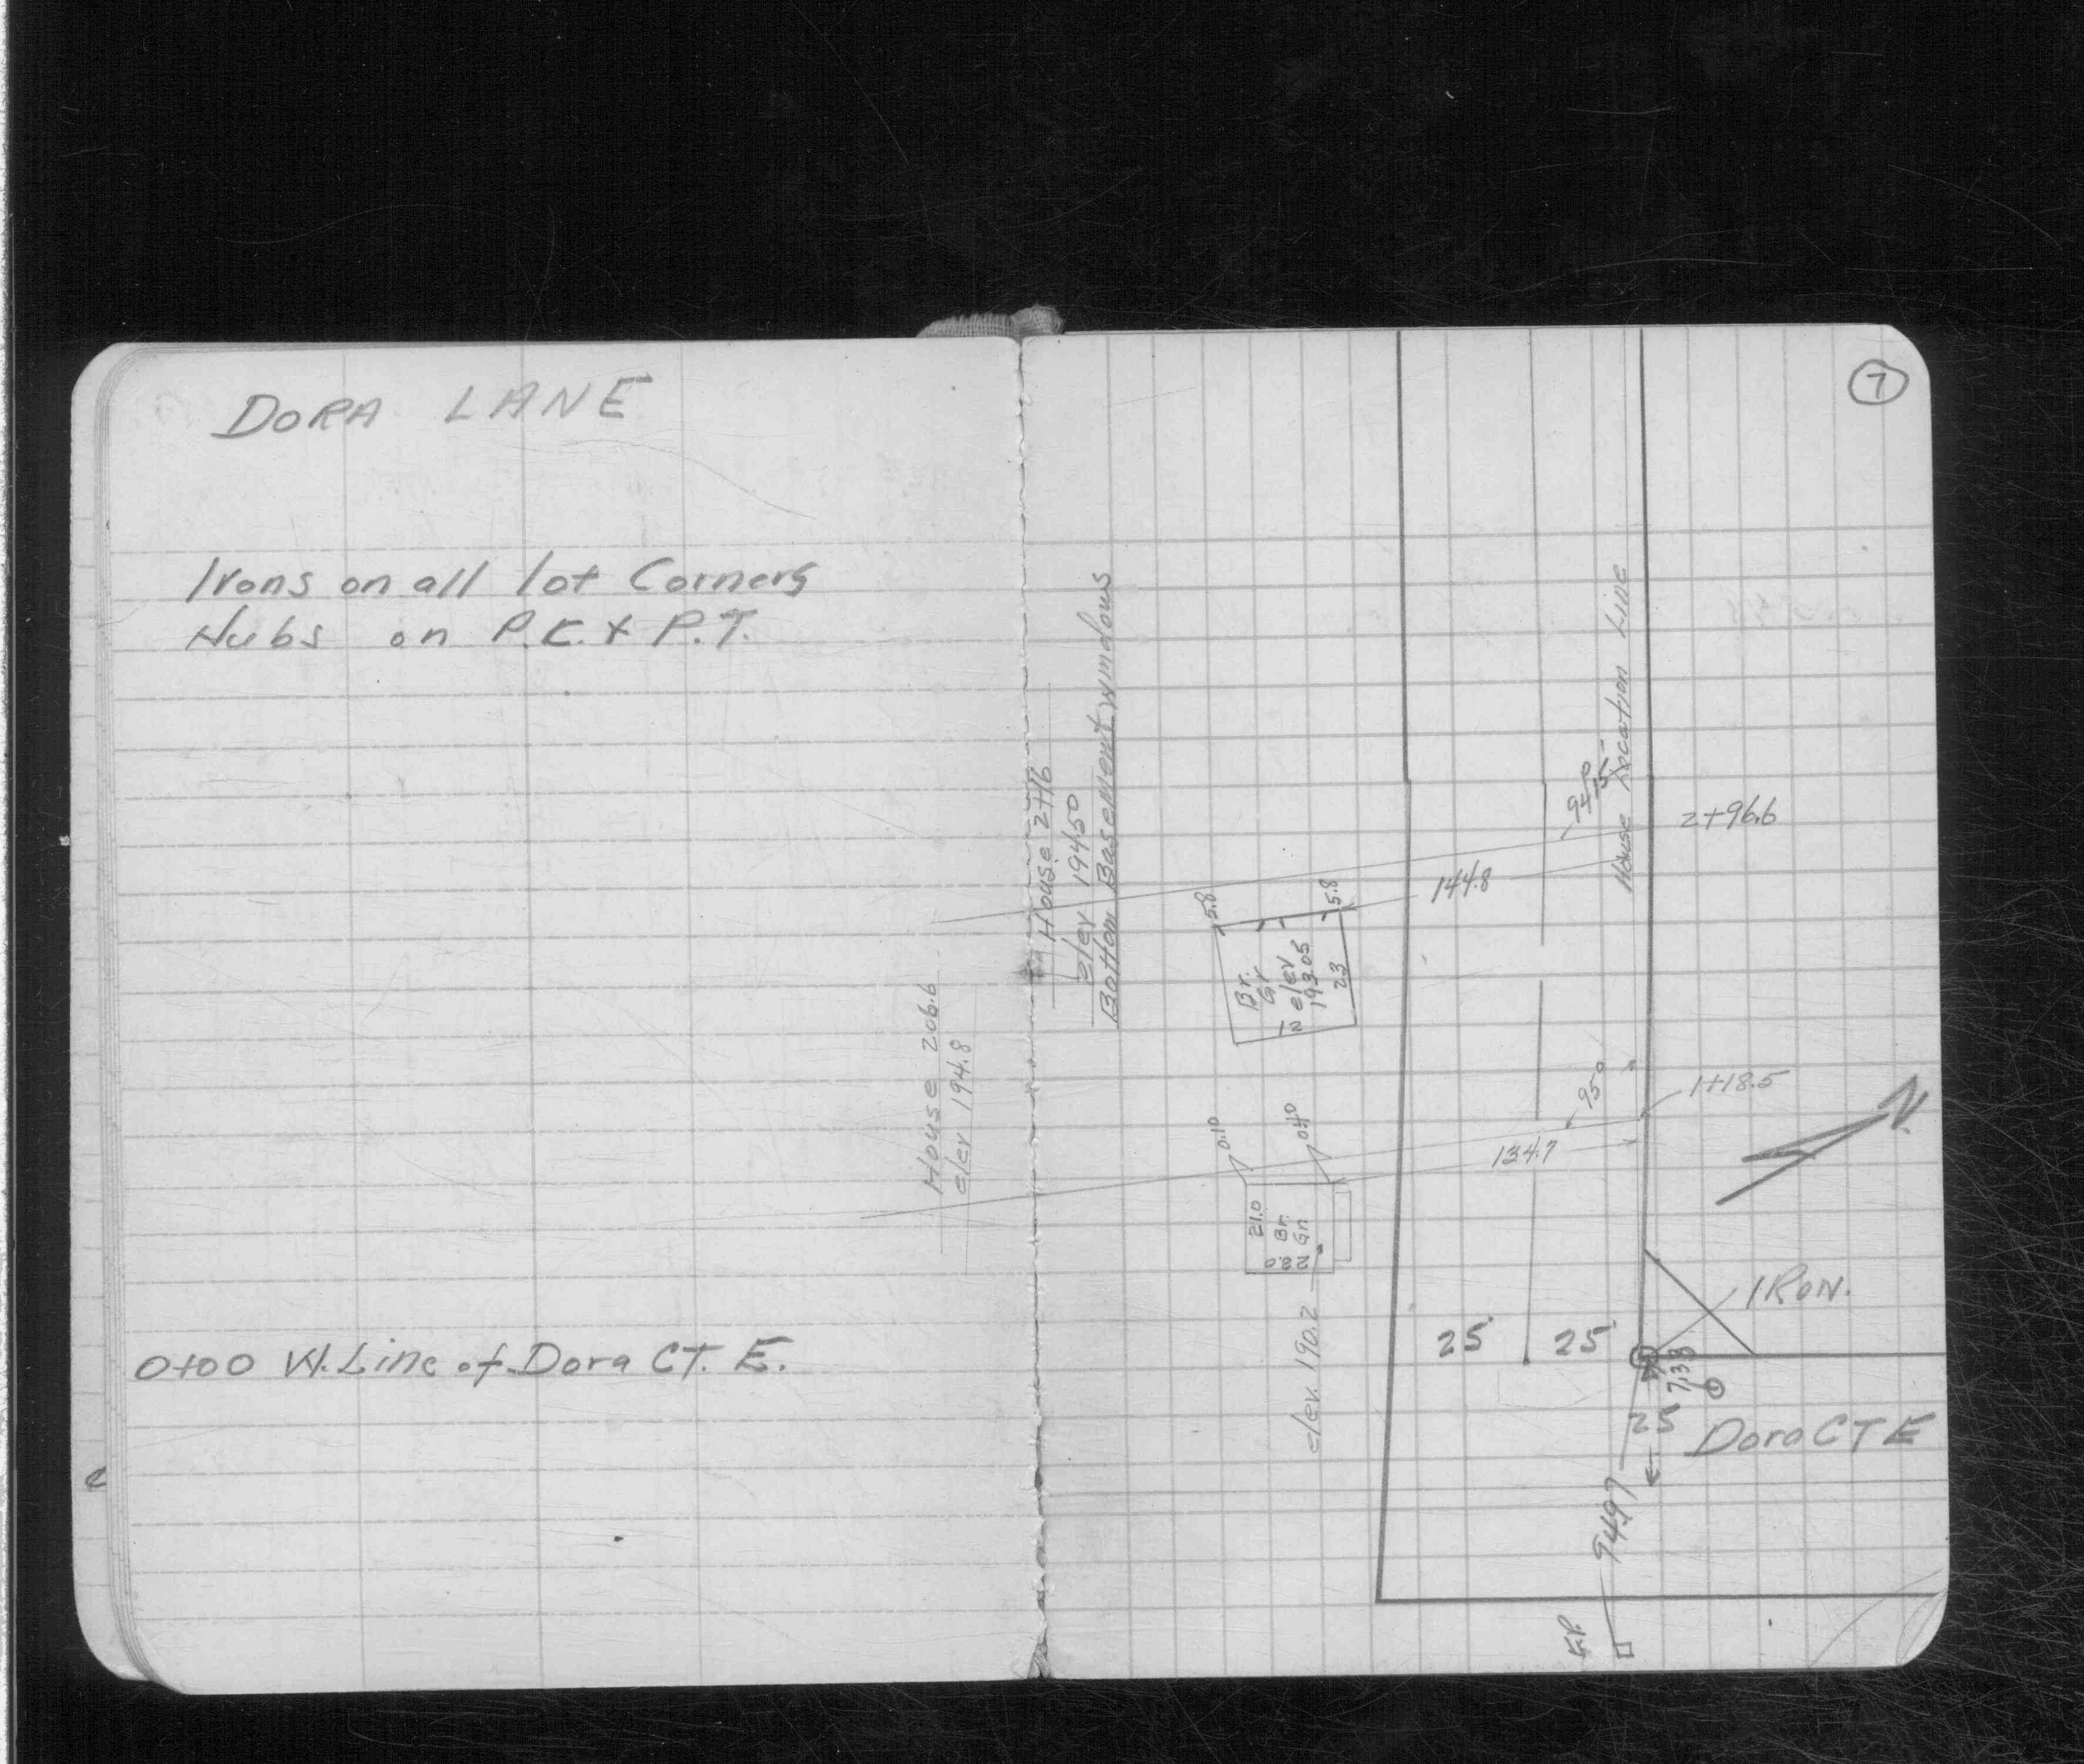 DORA LANE
Irons on all lot Corners
Hubs on P.C. & P.T.
0+00 W. Line of Dora CT. E.
House 206.6
elev 194.8
7
House 2+16
elev 194.50
Bottom Basement Windows
5.8
5.8
Br.
Gr
elev
193.05
12
23
144.8
House Location Line
2+96.6
0.10
21.0
Br.
Gn
134.7
1+18.5
N.
elev. 190.2
25
25
IRON.
7.33
25
Dora CT E